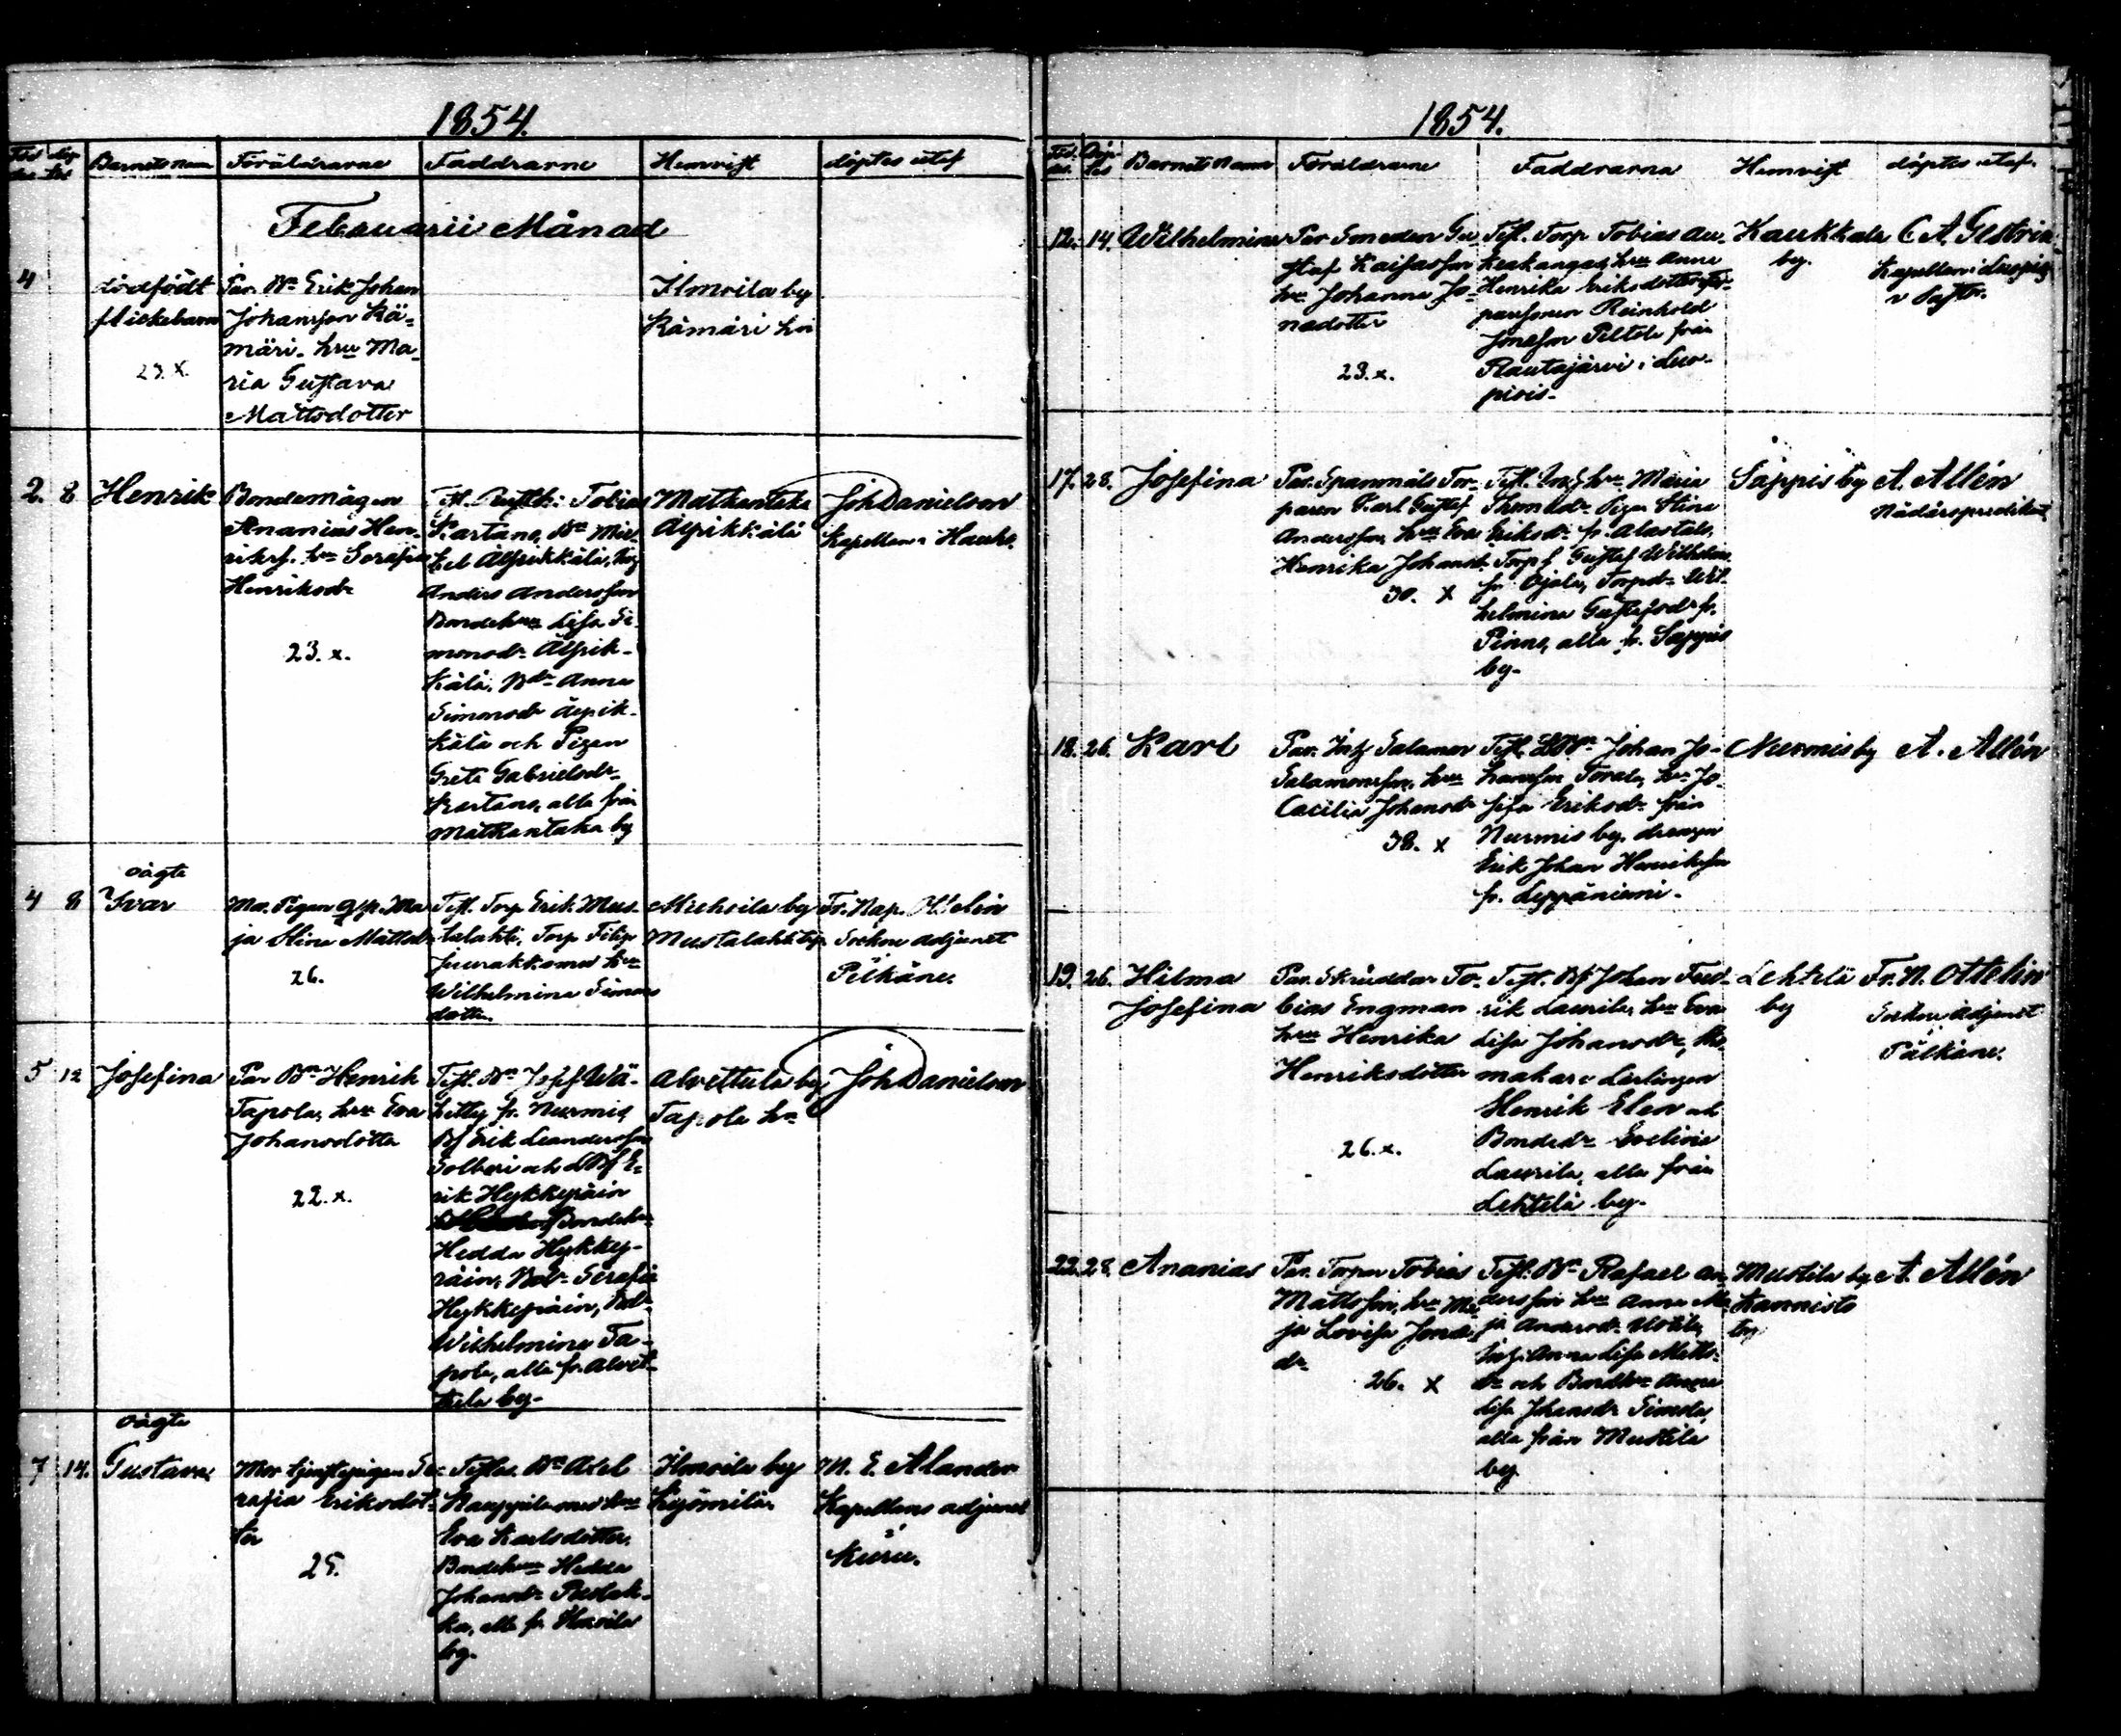 1854.
Barnets namn Föräldrarne Faddrarne Hemvist döptes utaf
Februarii Månad
4
dödfödt
flickebarn
23. x.
Par. Bn Erik Johan
Johansson Kä-
märi. hru Ma-
ria Gustava
Mattsdotter
Ilmoila by
Kämäri hn
2. 8 Henrik
Bondemågen
Ananias Hen-
riksf. hru Serafia
Henriksdr
23. x.
Tobias
Kartano, Bn Mic-
kel Älpikkälä,
Anders Andersson
Bondehru Lisa Si-
monsdr Älpik-
kälä, Bdr Anna
Simonsdr Älpik-
kälä och Pigan
Greta Gabrielsdr
Kartano, alla från
Matkantaka by
Matkantaka
Älpikkälä
Joh Danielson
Kapellan i Hauho.
oägta
4 8 Ivar
Mo. Pigan Ma
ja Stina Mattsdr
26.
Test. Torp Erik Mus-
talahti, Torp Filip
med hru
Wilhelmina Simons
dotter.
by
Mustalahti torp
Fr. Nap. Ottelin
Socken adjunct
Pelkäne.
5 12 Josefina
Par Bn Henrik
Tapola, hru Eva
Johansdotter
22. x.
Test. Bn Josef Wä-
hetty fr. Nurmis,
Bf Erik Leandersson
och Bf E-
rik Hykkyräin
Bondehru
Hedda Hykky-
räin, Bdr Serafia
Hykkyräin, Bdr
Wilhelmina Ta-
pola, alla fr. Alvet-
tula by-
Alvettula by
Tapola hn
Joh Danielson
oägta
7 14. Gustava
Mor tjenstepigan Se-
rafia Eriksdot-
ter
25.
Bn Axel
Kauppila med hru
Eva Karlsdotter.
Bondehru Hedda
Johansdr
ka, alla fr. Ilmoila
by-
Ilmoila by
M. E. Alander
Kapellans adjunct
i
Kuru.
1854.
Barnets Namn Föräldrarne Faddrarna Hemvist döptes utaf.
12. 14. Wilhelmina
Par Smeden Gu-
staf Kaisasson
hru Johanna Jo-
nadotter
23. x.
Test. Torp Tobias Au-
keakangas, hru Anna
Henrika Eriksdotter
Reinhold
Jonasson Peltola från
Rautajärvi i Luo-
piois-
Kaukkala
by.
C A Gestrin
Kapellan i Luopiois
17. 28. Josefina
Par. Spanmåls Tor-
paren Karl Gustaf
Andersson, hru Eva
Henrika Johansdr
30. x
Test. hru Maria
Thomasdr Pigan Stina
Eriksdr fr. Alastalo,
Torpf Gustaf Wilhelm
fr. Ojala, Torpdr Wil-
helmina Gustafsdr fr.
Pinno, alla fr. Sappis
by-
Sappis by
A. Allén
Nådårspredikat
18. 26. Karl
Par. Inh Salamon
Salamonsson, hru
Cacilia Johansdr
38. x
Test. Johan Jo-
hansson Torala, hru Jo-
sefa Eriksdr från
Nurmis by, drengen
Erik Johan Henriksson
fr. Leppäniemi-
Nurmis by
A. Allén
19. 26. Hilma
Josefina
Par. Skräddar To-
bias Engman
hru Henrika
Henriksdotter
26. x.
Test. Bf Johan Fred-
rik Laurila, hru Eva
Lisa Johansdr, Sko-
makare Lerlingen
Henrik Elen och
Bondedr Evelina
Laurila, alla från
Lehtelä by-
Lehtelä
by
Fr. N. Ottelin
Socken adjunct
Pälkäne.
22. 28. Ananias
Par. Torpar Tobias
Mattsson, hru Ma-
ja Lovisa Jonas
dr
26. x
Test. Bn Rafael An-
dersson hru Anna Ma-
ja Andersdr
Anna Lisa Matts-
dr och Bondhru Anna
Lisa Johansdr Simola,
alla från Mustila
by.
Mustila by
Kannisto
torp
A. Allén